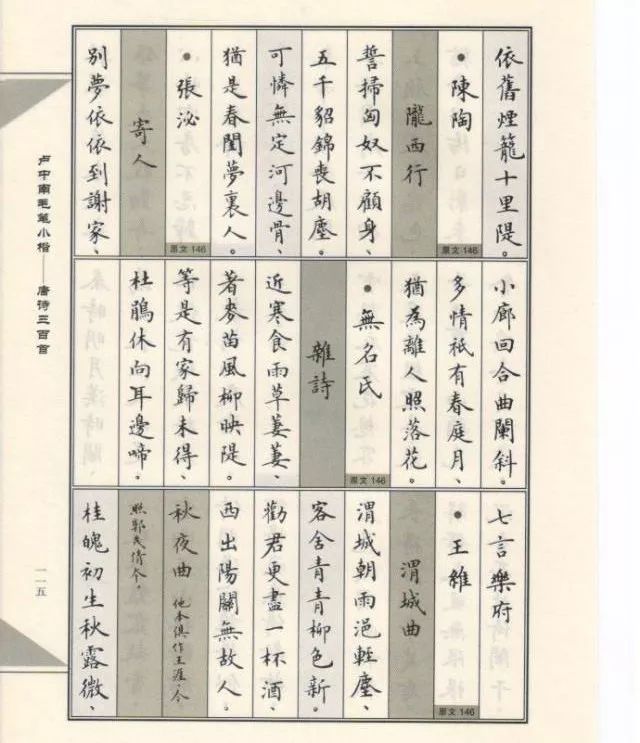 依舊煙籠十里隄。
•陳陶
原文 146
隴西行
誓掃匈奴不顧身、
五千貂錦喪胡塵。
可憐無定河邊骨、
猶是春閨夢裏人。
•張泌
原文 146
寄人
別夢依依到謝家、
小廊回合曲闌斜。
多情祇有春庭月、
猶為離人照落花。
•無名氏
原文 146
雜詩
近寒食雨草萋萋、
著麥苗風柳映隄。
等是有家歸未得、
杜鵑休向耳邊啼。
七言樂府
•王維
原文 146
渭城曲
渭城朝雨浥輕塵、
客舍青青柳色新。
勸君更盡一杯酒、
西出陽關無故人。
秋夜曲 他本俱作王涯,今
照郭茂倩
桂魄初生秋露微、
卢中南毛笔小楷——唐诗三百首
一一五